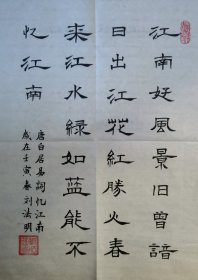 江南好風景旧曾諳
日出江花紅勝火春
来江水緑如蓝能不
忆江南
唐白居易詞忆江南
歲在壬寅春刘法明